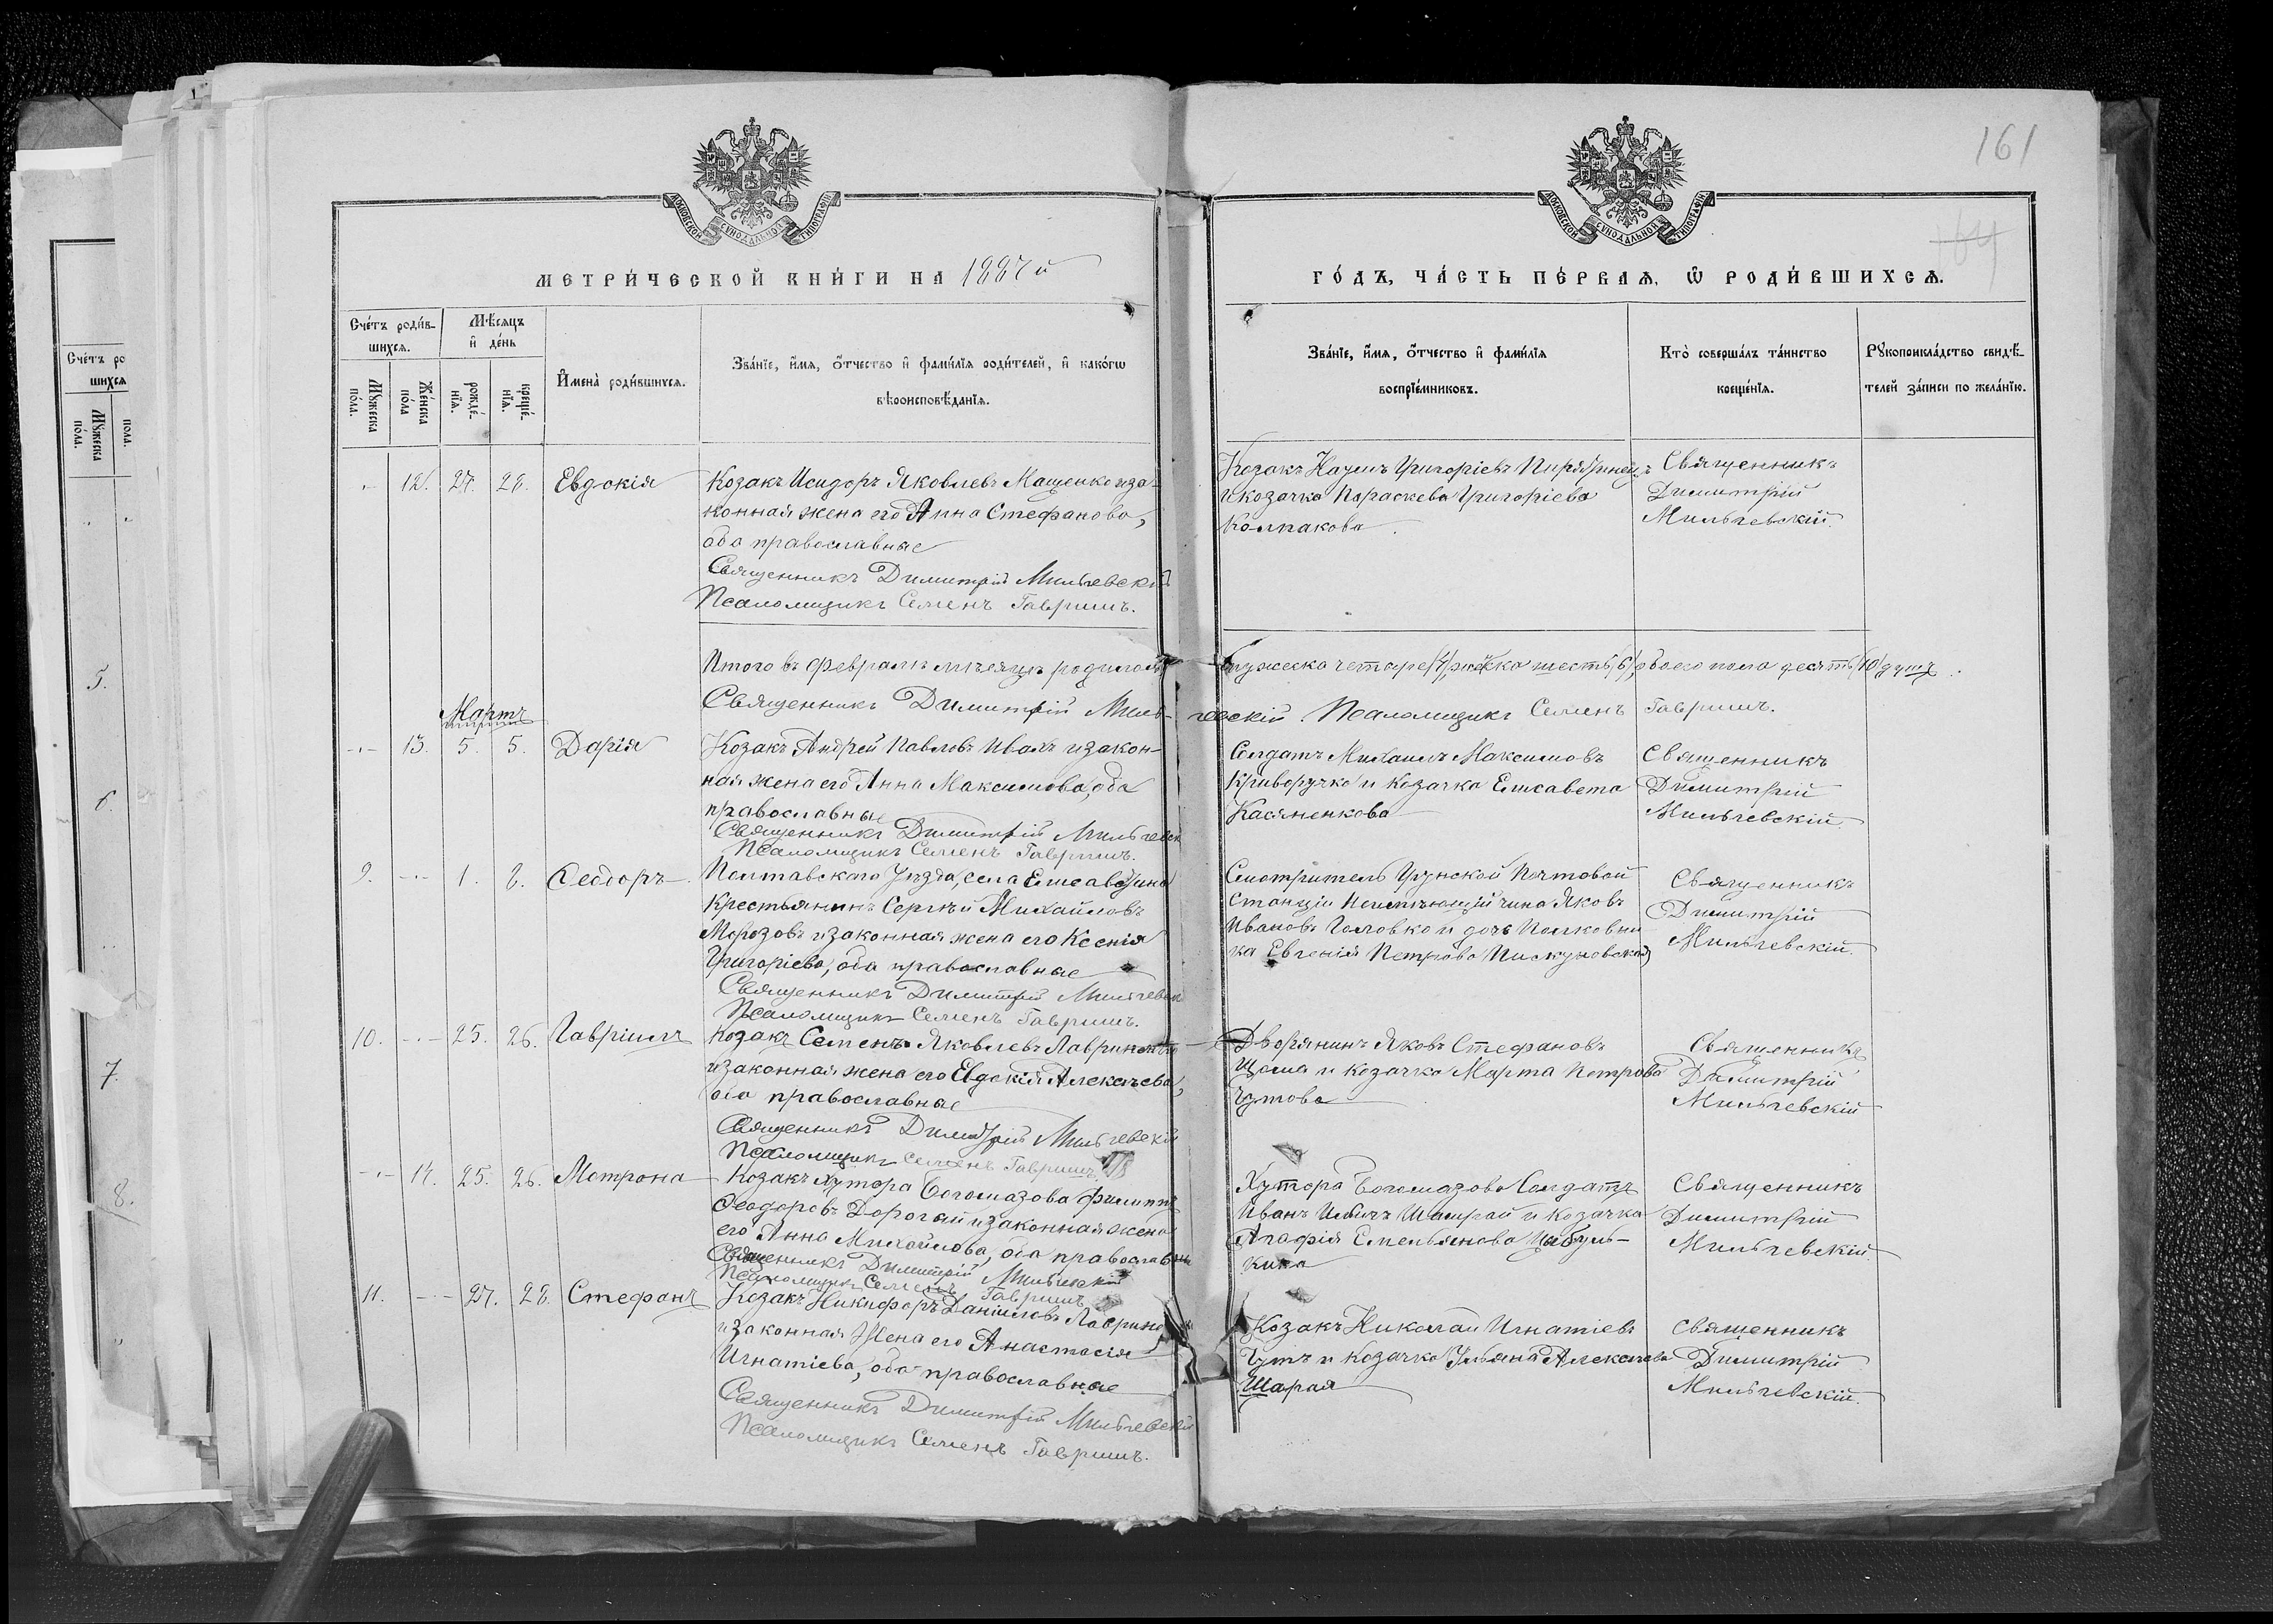 161
МЕТРИ́ЧЕСКОЙ КНИ́ГИ НА 1887й
ГО́ДЪ, ЧА́СТЬ ПЕ́РВАЯ, Ѡ РОДИ́ВШИХСЯ.
Сче́тъ роди́в-
шихся.
Мѣ́сяцъ
и де́нь
Мꙋ́жеска
по́ла.
Же́нска
по́ла
рожде́-
нїѧ.
креще́-
нїѧ.
И҆мена̀ роди́вшихся.
Зва́нїе, и҆́мѧ, ѻ҆́тчество и҆ фами́лїѧ роди́телей, и҆ како́гѡ
вѣроисповѣ́данїѧ.
Зва́нїе, и҆́мѧ, ѻ҆́тчество и҆ фами́лїѧ
воспрїе́мниковъ.
Кто̀ соверша́лъ та́инство
креще́нїѧ.
Рꙋкоприкла́дство свидѣ́-
телей за́писи по жела́нїю.
12. 27. 28. Евдокія
Козакъ Исидоръ Яковлевъ Мащенко и за-
конная жена его Анна Стефанова,
оба православные
Священникъ Димитрій Мильчевскій
Псаломщикъ Семенъ Гавришъ.
Козакъ Наумъ Григоріевъ Пирятинецъ
и козачка Параскева Григоріева
Колпакова.
Священникъ
Димитрій
Мильчевскій.
Итого въ февралѣ мѣсяцѣ родилось мужеска четыре (4), женска шесть (6), обоего пола десять (10) душъ.
Священникъ Димитрій Мильчевскій. Псаломщикъ Семенъ Гавришъ.
Мартъ
13. 5. 5. Дарія
Козакъ Андрей Павловъ Ивахъ и закон-
ная жена его Анна Максимова, оба
православные
Священникъ Димитрій Мильчевск
Псаломщикъ Семенъ Гавришъ.
Солдатъ Михаилъ Максимовъ
Криворучко и козачка Елисавета
Касяненкова
Священникъ
Димитрій
Мильчевскій.
9. 1. 8. Ѳеодоръ
Полтавскаго Уѣзда, села Елисаветина
Крестьянинъ Сергѣй Михайловъ
Морозовъ и законная жена его Ксенія
Григоріева, оба православные
Священникъ Димитрій Мильчевск
Псаломщикъ Семенъ Гавришъ.
Смотритель Грунской Почтовой
Станціи Неимѣющій чина Яковъ
Ивановъ Головко и дочь Полковни
ка Евгенія Петрова Пискуновская
Священникъ
Димитрій
Мильчевскій.
10. 25. 26. Гавріилъ
Козакъ Семенъ Яковлевъ Лавриненко
и законная жена его Евдокія Алексѣева,
оба православные
Священникъ Димитрій Мильчевскій
Псаломщикъ Семенъ Гавришъ.
Дворянинъ Яковъ Стефановъ
и козачка Марта Петрова
Чутова
Священникъ
Димитрій
Мильчевскій
14. 25. 26. Мотрона
Козакъ хутора Богомазова Филиппъ
Ѳеодоровъ Дорогай и законная жена
его Анна Михайлова, оба православные
Священникъ Димитрій Мильчевскій
Псаломщикъ Семенъ Гавришъ
Хутора Богомазова Солдатъ
Иванъ Ильичъ Шамрай и козачка
Агафія Емельянова Цыбуль-
кина
Священникъ
Димитрій
Мильчевскій.
11. 27. 28. Стефанъ
Козакъ Никифоръ Даніиловъ Лаврино
и законная Жена его Анастасія
Игнатіева, оба православные
Священникъ Димитрій Мильчевскій
Псаломщикъ Семенъ Гавришъ.
Козакъ Николай Игнатіевъ
Чутъ и козачка Ульяна Алексѣева
Шарая
Священникъ
Димитрій
Мильчевскій.
5.
6.
7.
8.